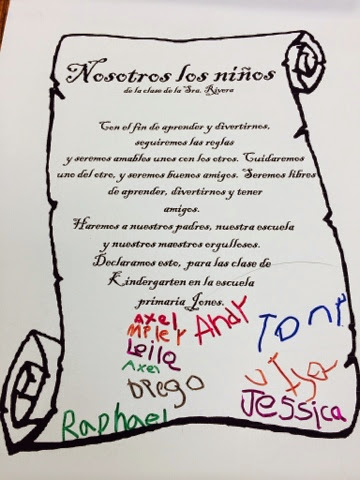 Nosotros los niños
de la clase de la Sra. Rivera
Con el fin de aprender y divertirnos,
seguiremos las reglas
y seremos amables unos con los otros. Cuidaremos
uno del otro, y seremos buenos amigos. Seremos libres
de aprender, divertirnos y tener
amigos.
Haremos a nuestros padres, nuestra escuela
y nuestros maestros orgullosos.
Declaramos esto, para las clase de
Kindergarten en la escuela
primaria Jones.
Axel
Andy
Tony
Leila
Axel
Diego
Jessica
Raphael